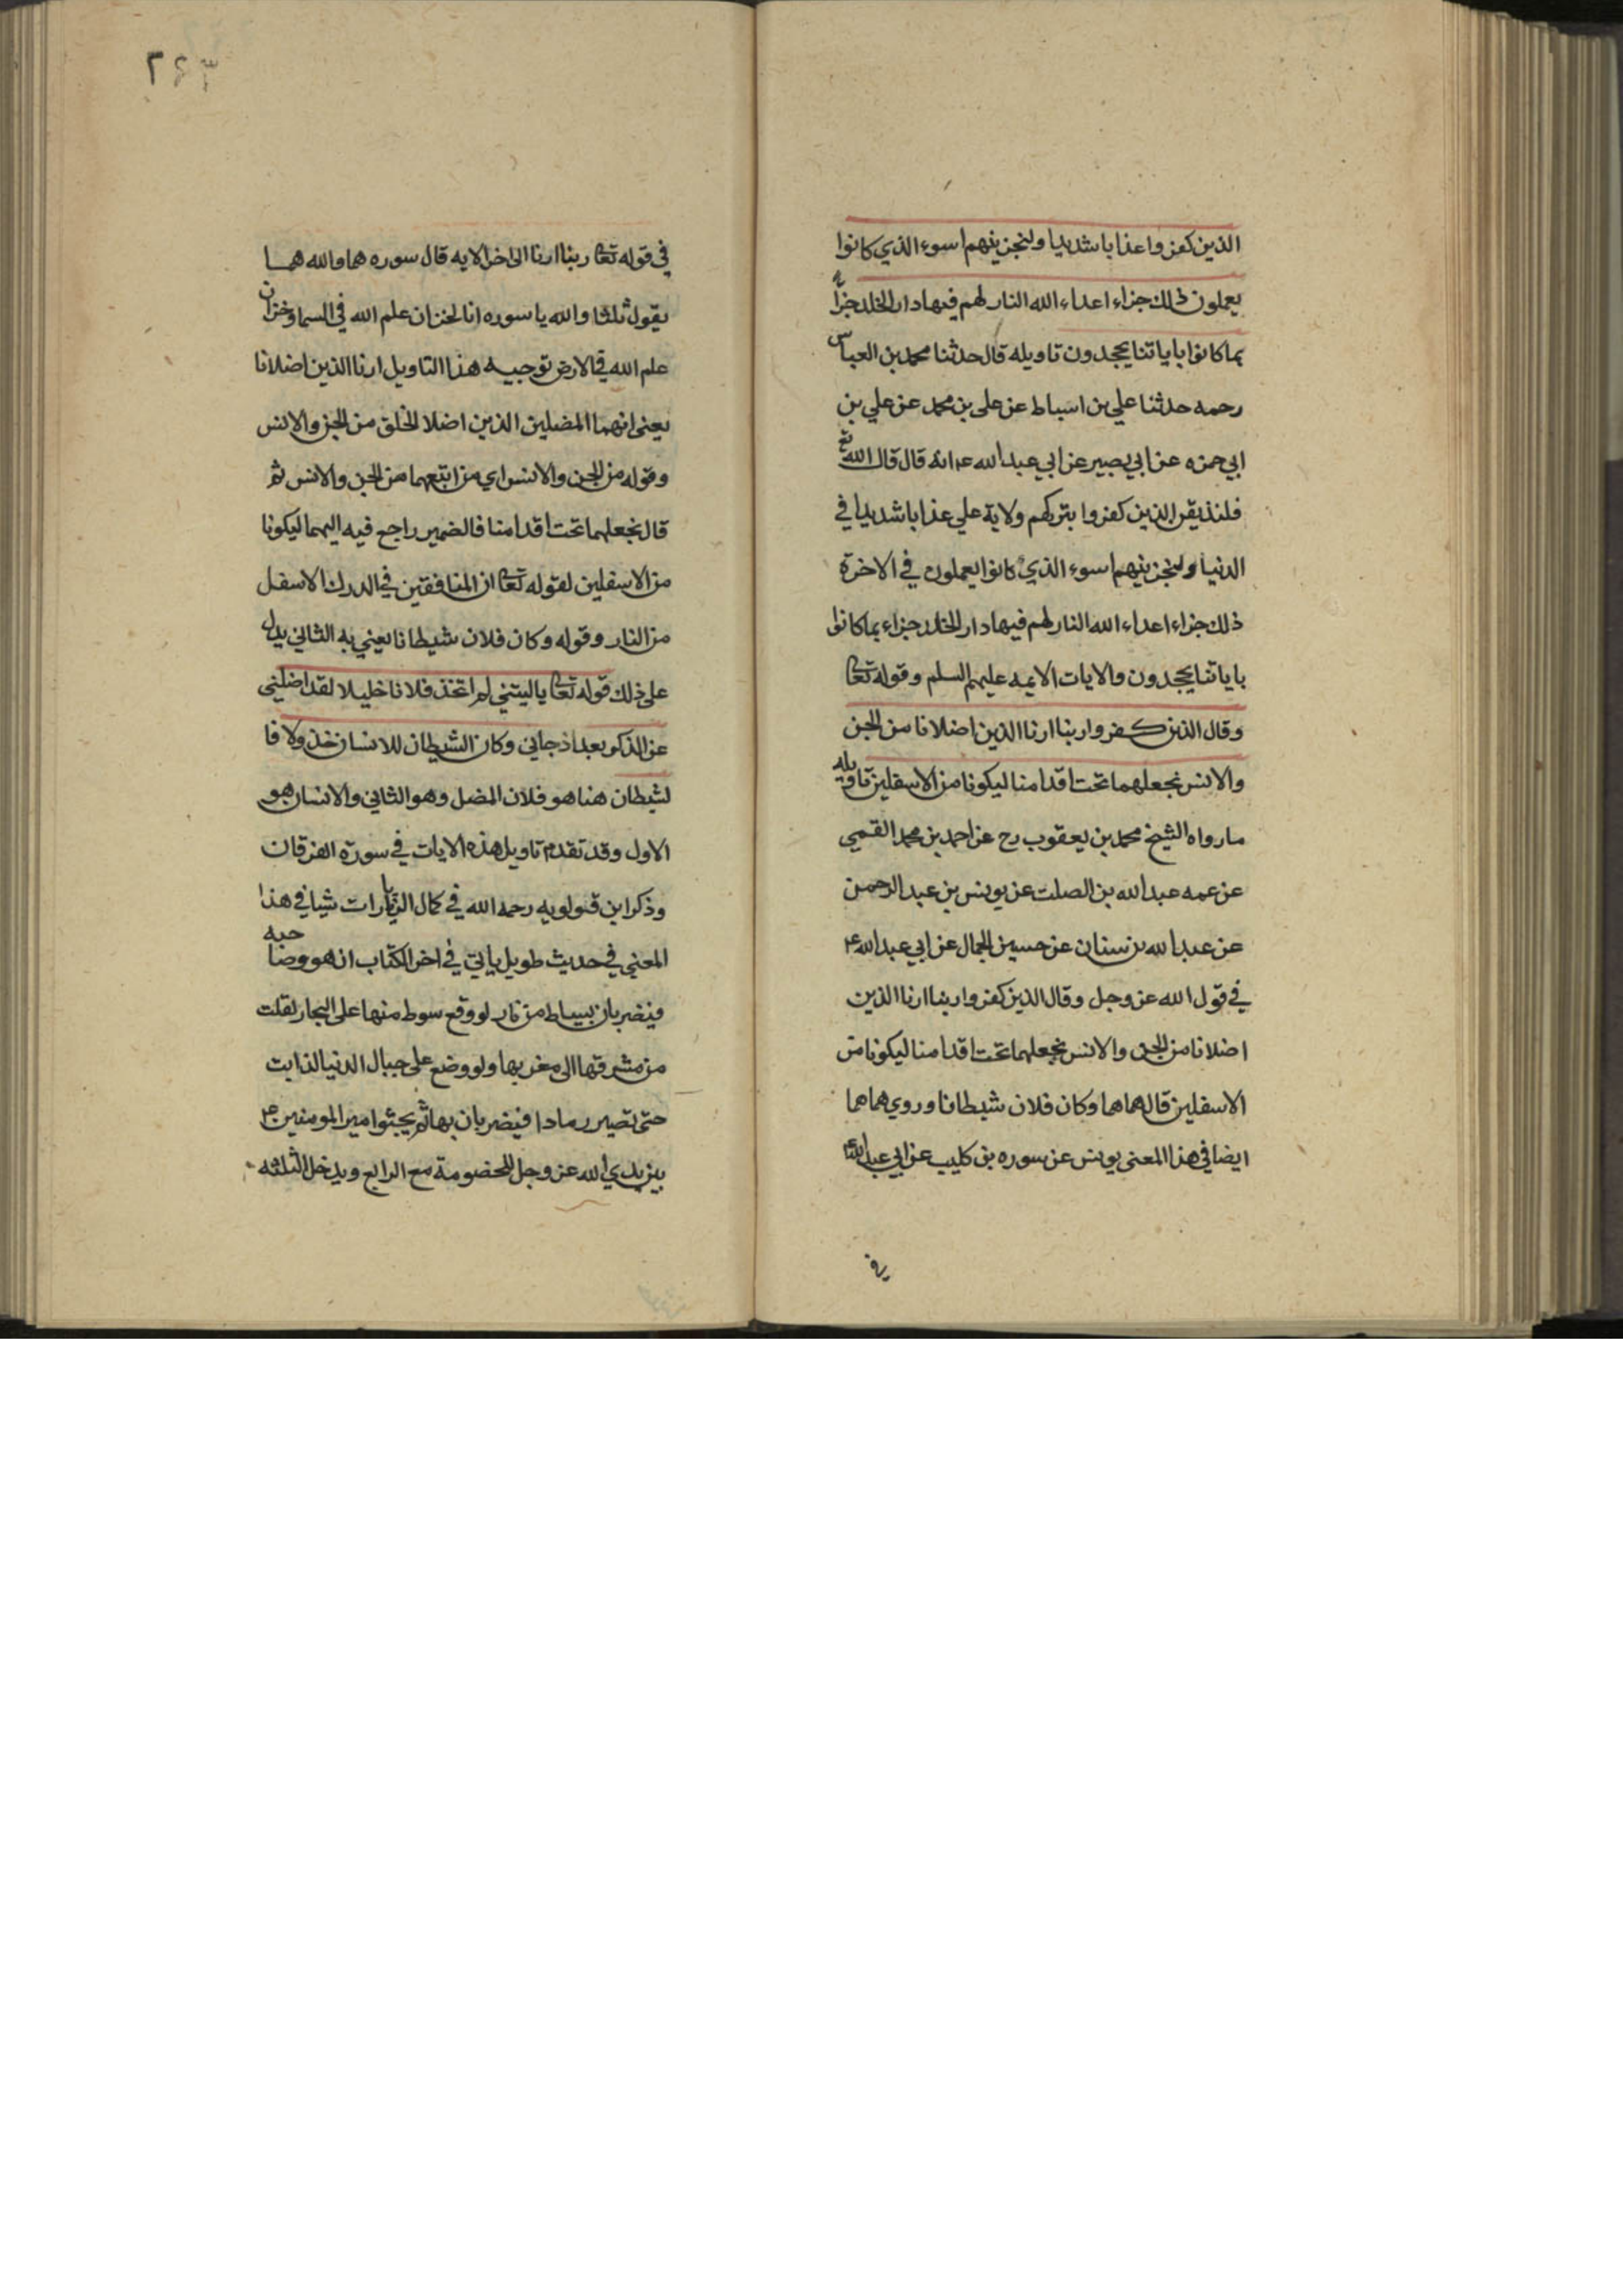 الذين كفروا عذابا شديدا ولنجزينهم اسوء الذي كانوا
يعملون ذلك جزاء اعداء الله النار لهم فيها دار الخلد جزاء
بما كانوا باياتنا يجحدون تاويله قال حدثنا محمد بن العباس
رحمه حدثنا علي بن اسباط عن علي بن محمد عن علي بن
ابي حمزه عن ابي بصير عن ابي عبد الله ع انه قال قال الله تع
فلنذيقن الذين كفروا بتركهم ولاية علي عذابا شديدا في
الدنيا ولنجزينهم اسوء الذي كانوا يعملون في الاخرة
ذلك جزاء اعداء الله النار لهم فيها دار الخلد جزاء بما كانوا
باياتنا يجحدون والايات الايمه عليهم السلم وقوله تعا
وقال الذين كفروا ربنا ارنا الذين اضلانا من الجن
والانس نجعلهما تحت اقدامنا ليكونا من الاسفلين تاويله
ما رواه الشيخ محمد بن يعقوب رح عن احمد بن محمد القمي
عن عمه عبد الله بن الصلت عن يونس بن عبد الرحمن
عن عبد الله بن سنان عن حسين الجمال عن ابي عبد الله ع
في قول الله عز وجل وقال الذين كفروا ربنا ارنا الذين
اضلانا من الجن والانس نجعلهما تحت اقدامنا ليكونا من
الاسفلين قال هما هما وكان فلان شيطانا وروي هما هما
ايضا في هذا المعنى يونس عن سوره بن كليب عن ابي عبد الله ع
في
٢٤٣
في قوله تعا ربنا ارنا الى اخر الايه قال سوره هما والله هما
يقول ثلثا والله يا سوره انا لخزان علم الله في السما وخزان
علم الله في الارض توجيه هذا التاويل ارنا الذين اضلانا
يعني انهما المضلين الذين اضلا الخلق من الجن والانس
وقوله من الجن والانس اي من اتبعهما من الجن والانس ثم
قال نجعلهما تحت اقدامنا فالضمير راجع فيه اليهما ليكونا
من الاسفلين لقوله تعا ان المنافقين في الدرك الاسفل
من النار وقوله وكان فلان شيطانا يعني به الثاني يدل
على ذلك قوله تعا ياليتني لم اتخذ فلانا خليلا لقد اضلني
عن الذكر بعد اذ جاني وكان الشيطان للانسان خذولا فا
لشيطان هنا هو فلان المضل وهو الثاني والانسان هو
الاول وقد تقدم تاويل هذه الايات في سورة الفرقان
وذكر ابن قولويه رحمه الله في كمال الزيارات شيا في هذا
المعني في حديث طويل ياتي في اخر الكتاب انه هو وصاحبه
فيضربان بسياط من نار لو وقع سوط منها على البحار لقلت
من مشرقها الى مغربها ولو وضع على جبال الدنيا لذابت
حتى تصير رمادا فيضربان بها ثم يجثوا امير المومنين ع
بين يدي الله عز وجل للخصومة مع الرابع ويدخل الثلثه